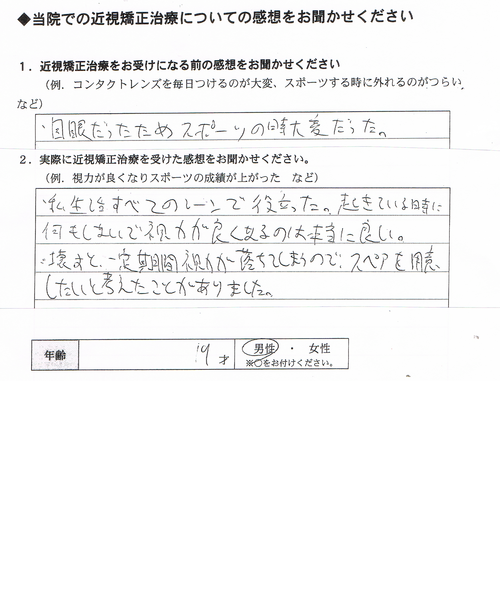 ◆当院での近視矯正治療についての感想をお聞かせください
1．近視矯正治療をお受けになる前の感想をお聞かせください
（例．コンタクトレンズを毎日つけるのが大変、スポーツする時に外れるのがつらい
など）
・図眼だったためスポーツの時大変だった。
2．実際に近視矯正治療を受けた感想をお聞かせください。
（例．視力が良くなりスポーツの成績が上がった　など）
・私生活すべてのシーンで役立った。起きている時に
何もしないで視力が良くなるのは本当に良い。
・壊すと、一定期間視力が落ちてしまうので、スペアを用意
したいと考えたことがありました。
年齢 19才 男性 ・ 女性
※○をお付けください。